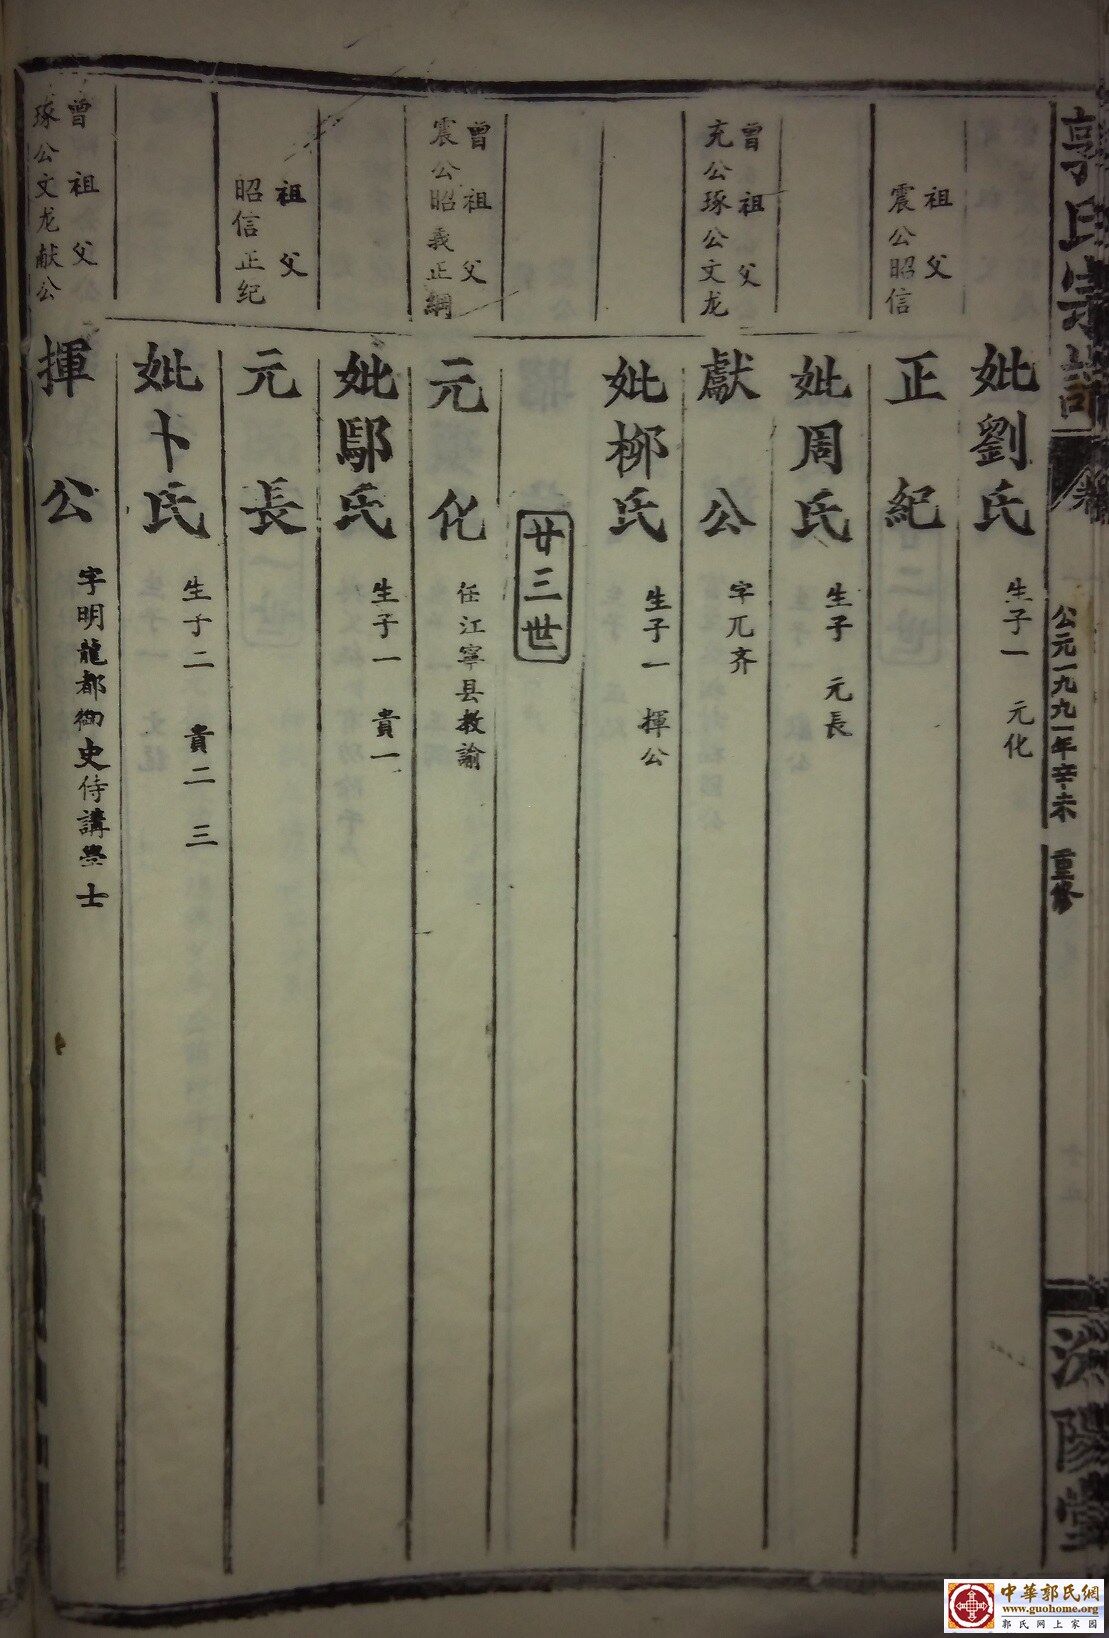 郭氏宗譜
卷
公元一九九一年辛未 重修
濟陽堂
妣劉氏
生子一 元化
祖父
震公昭信
正紀
妣周氏
生子 元長
曾祖父
充公琢公文龙
獻公
字兀齐
妣柳氏
生子一 揮公
廿三世
曾祖父
震公昭義正綱
元化
任江寧县教諭
妣鄢氏
生子一 貴一
祖父
昭信正纪
元長
妣卜氏
生子二 貴二 三
曾祖父
琢公文龙献公
揮公
字明龍都御史侍講學士
中華郭氏網
www.guohome.org
郭氏网上家园